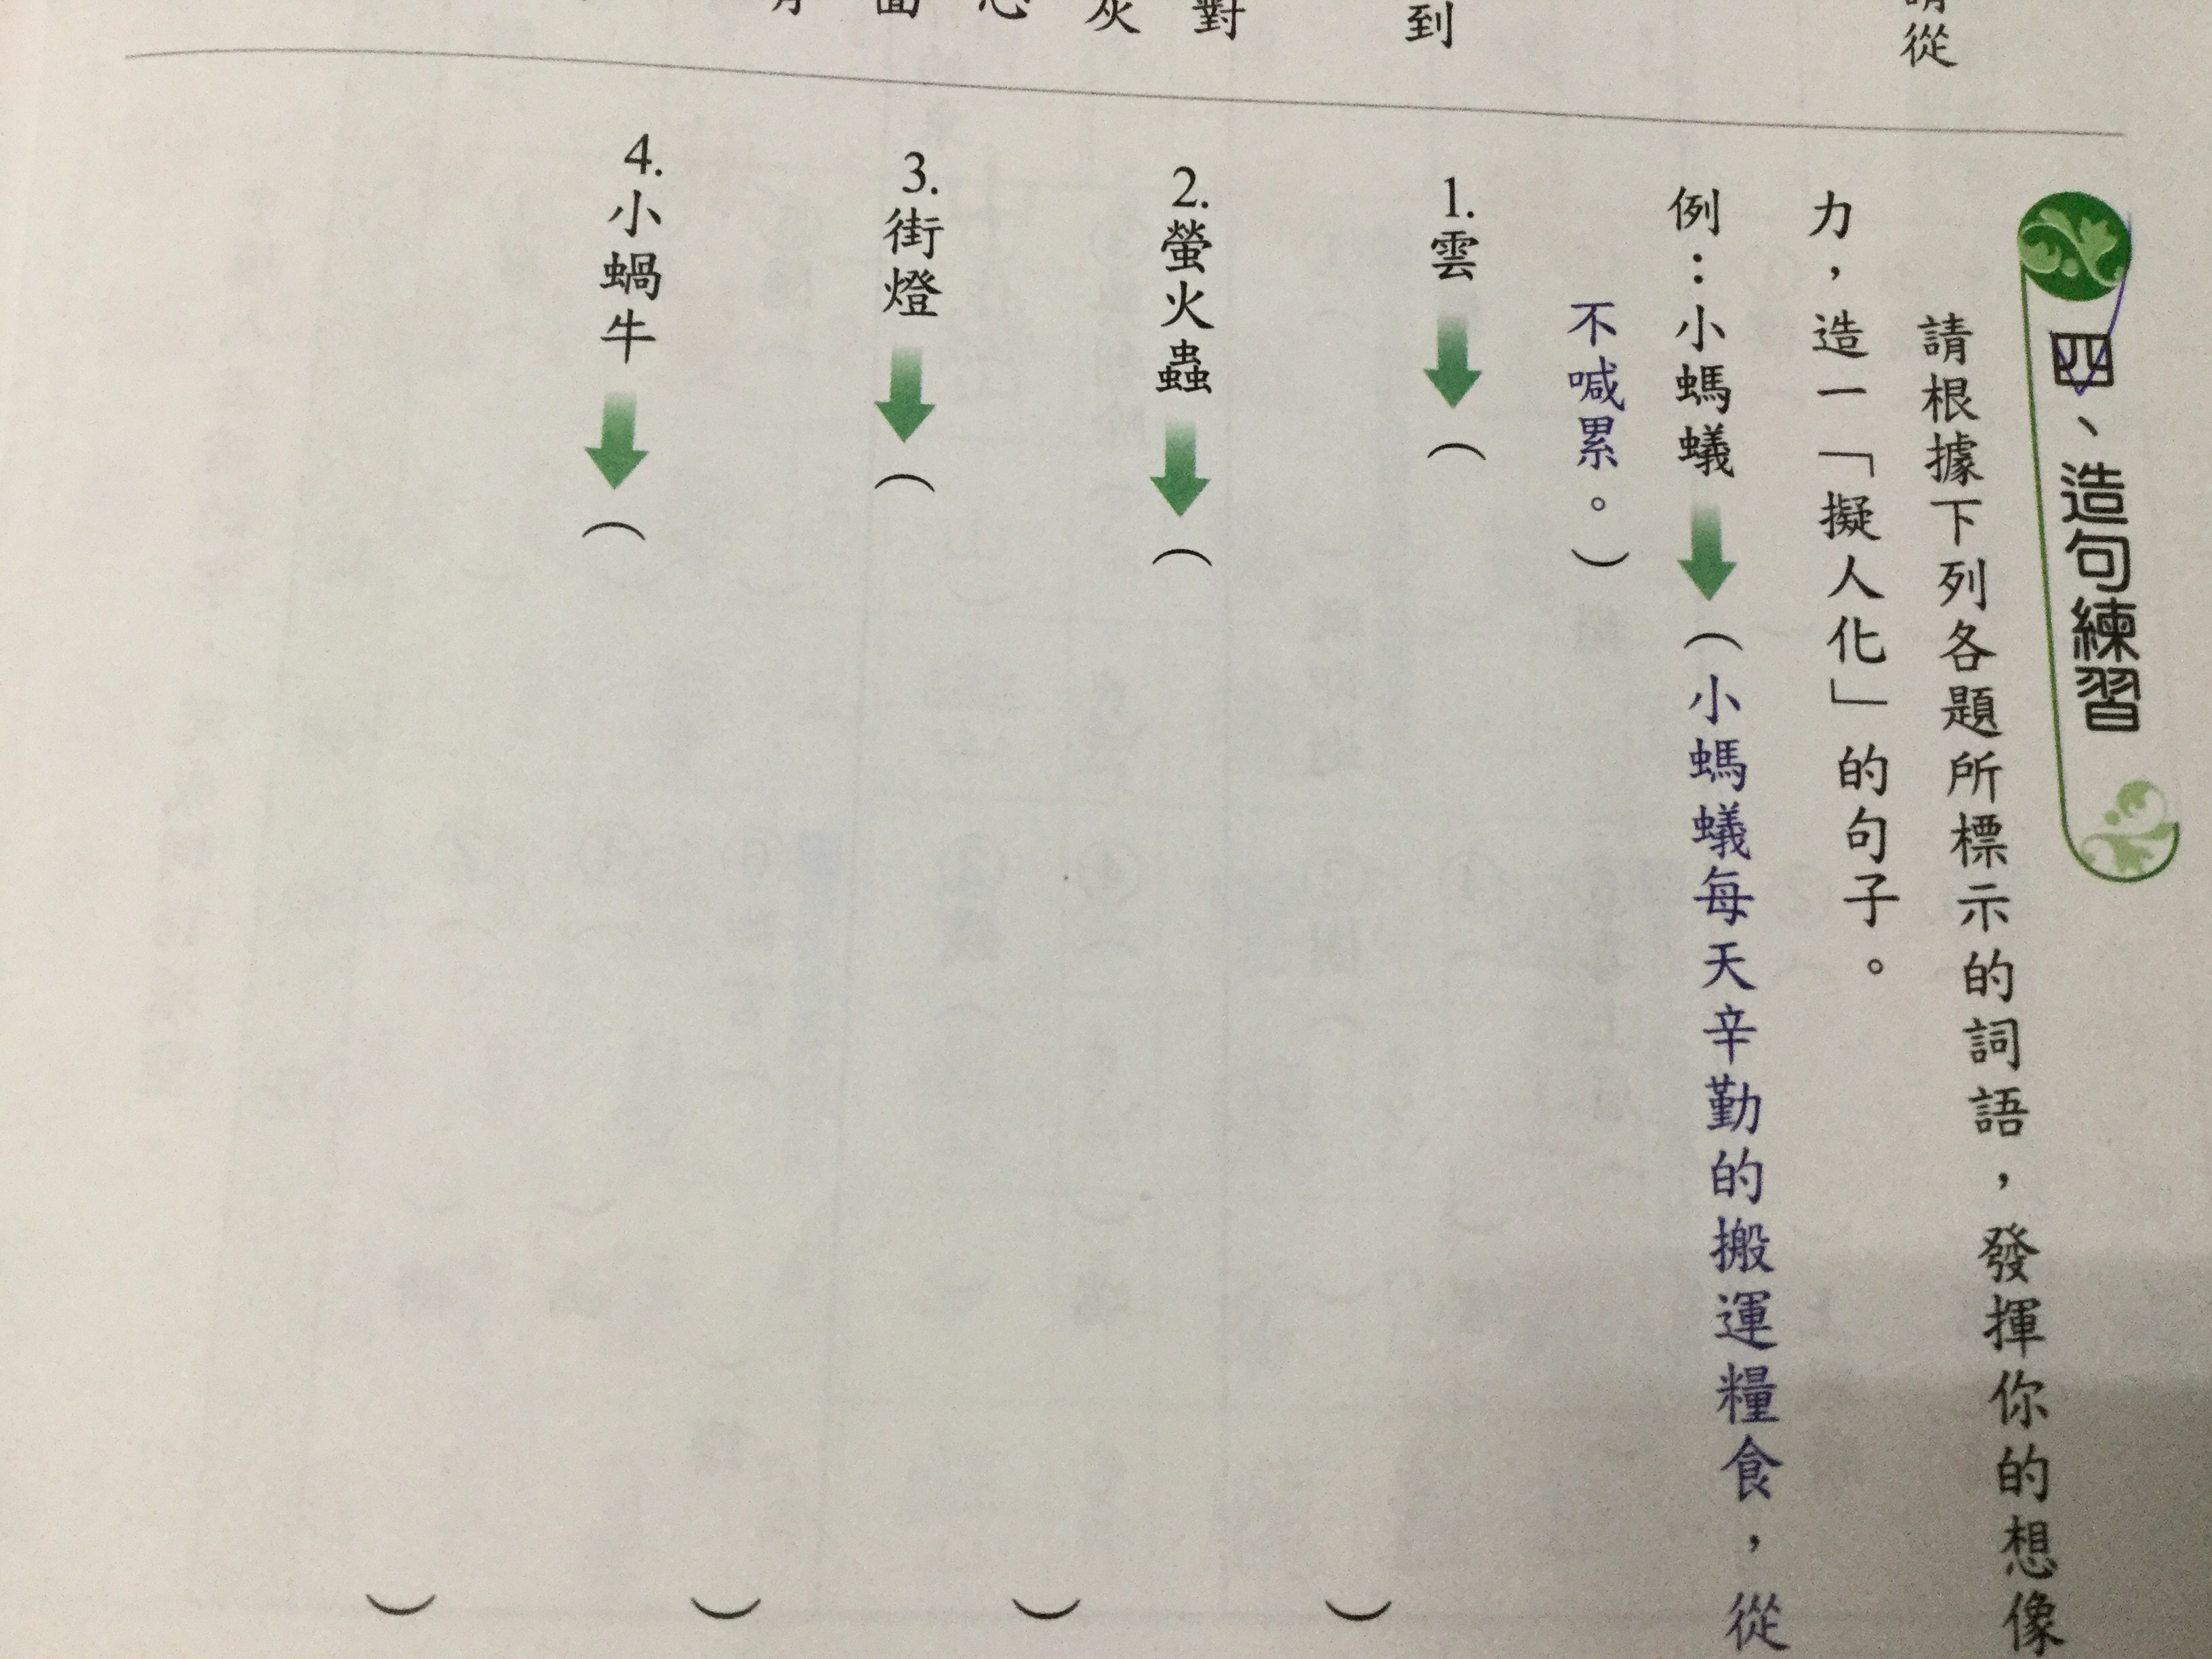 從
到
對
灰
心
面
四、造句練習
請根據下列各題所標示的詞語，發揮你的想像
力，造一「擬人化」的句子。
例：小螞蟻（小螞蟻每天辛勤的搬運糧食，從
不喊累。）
1.雲（　）
2.螢火蟲（　）
3.街燈（　）
4.小蝸牛（　）